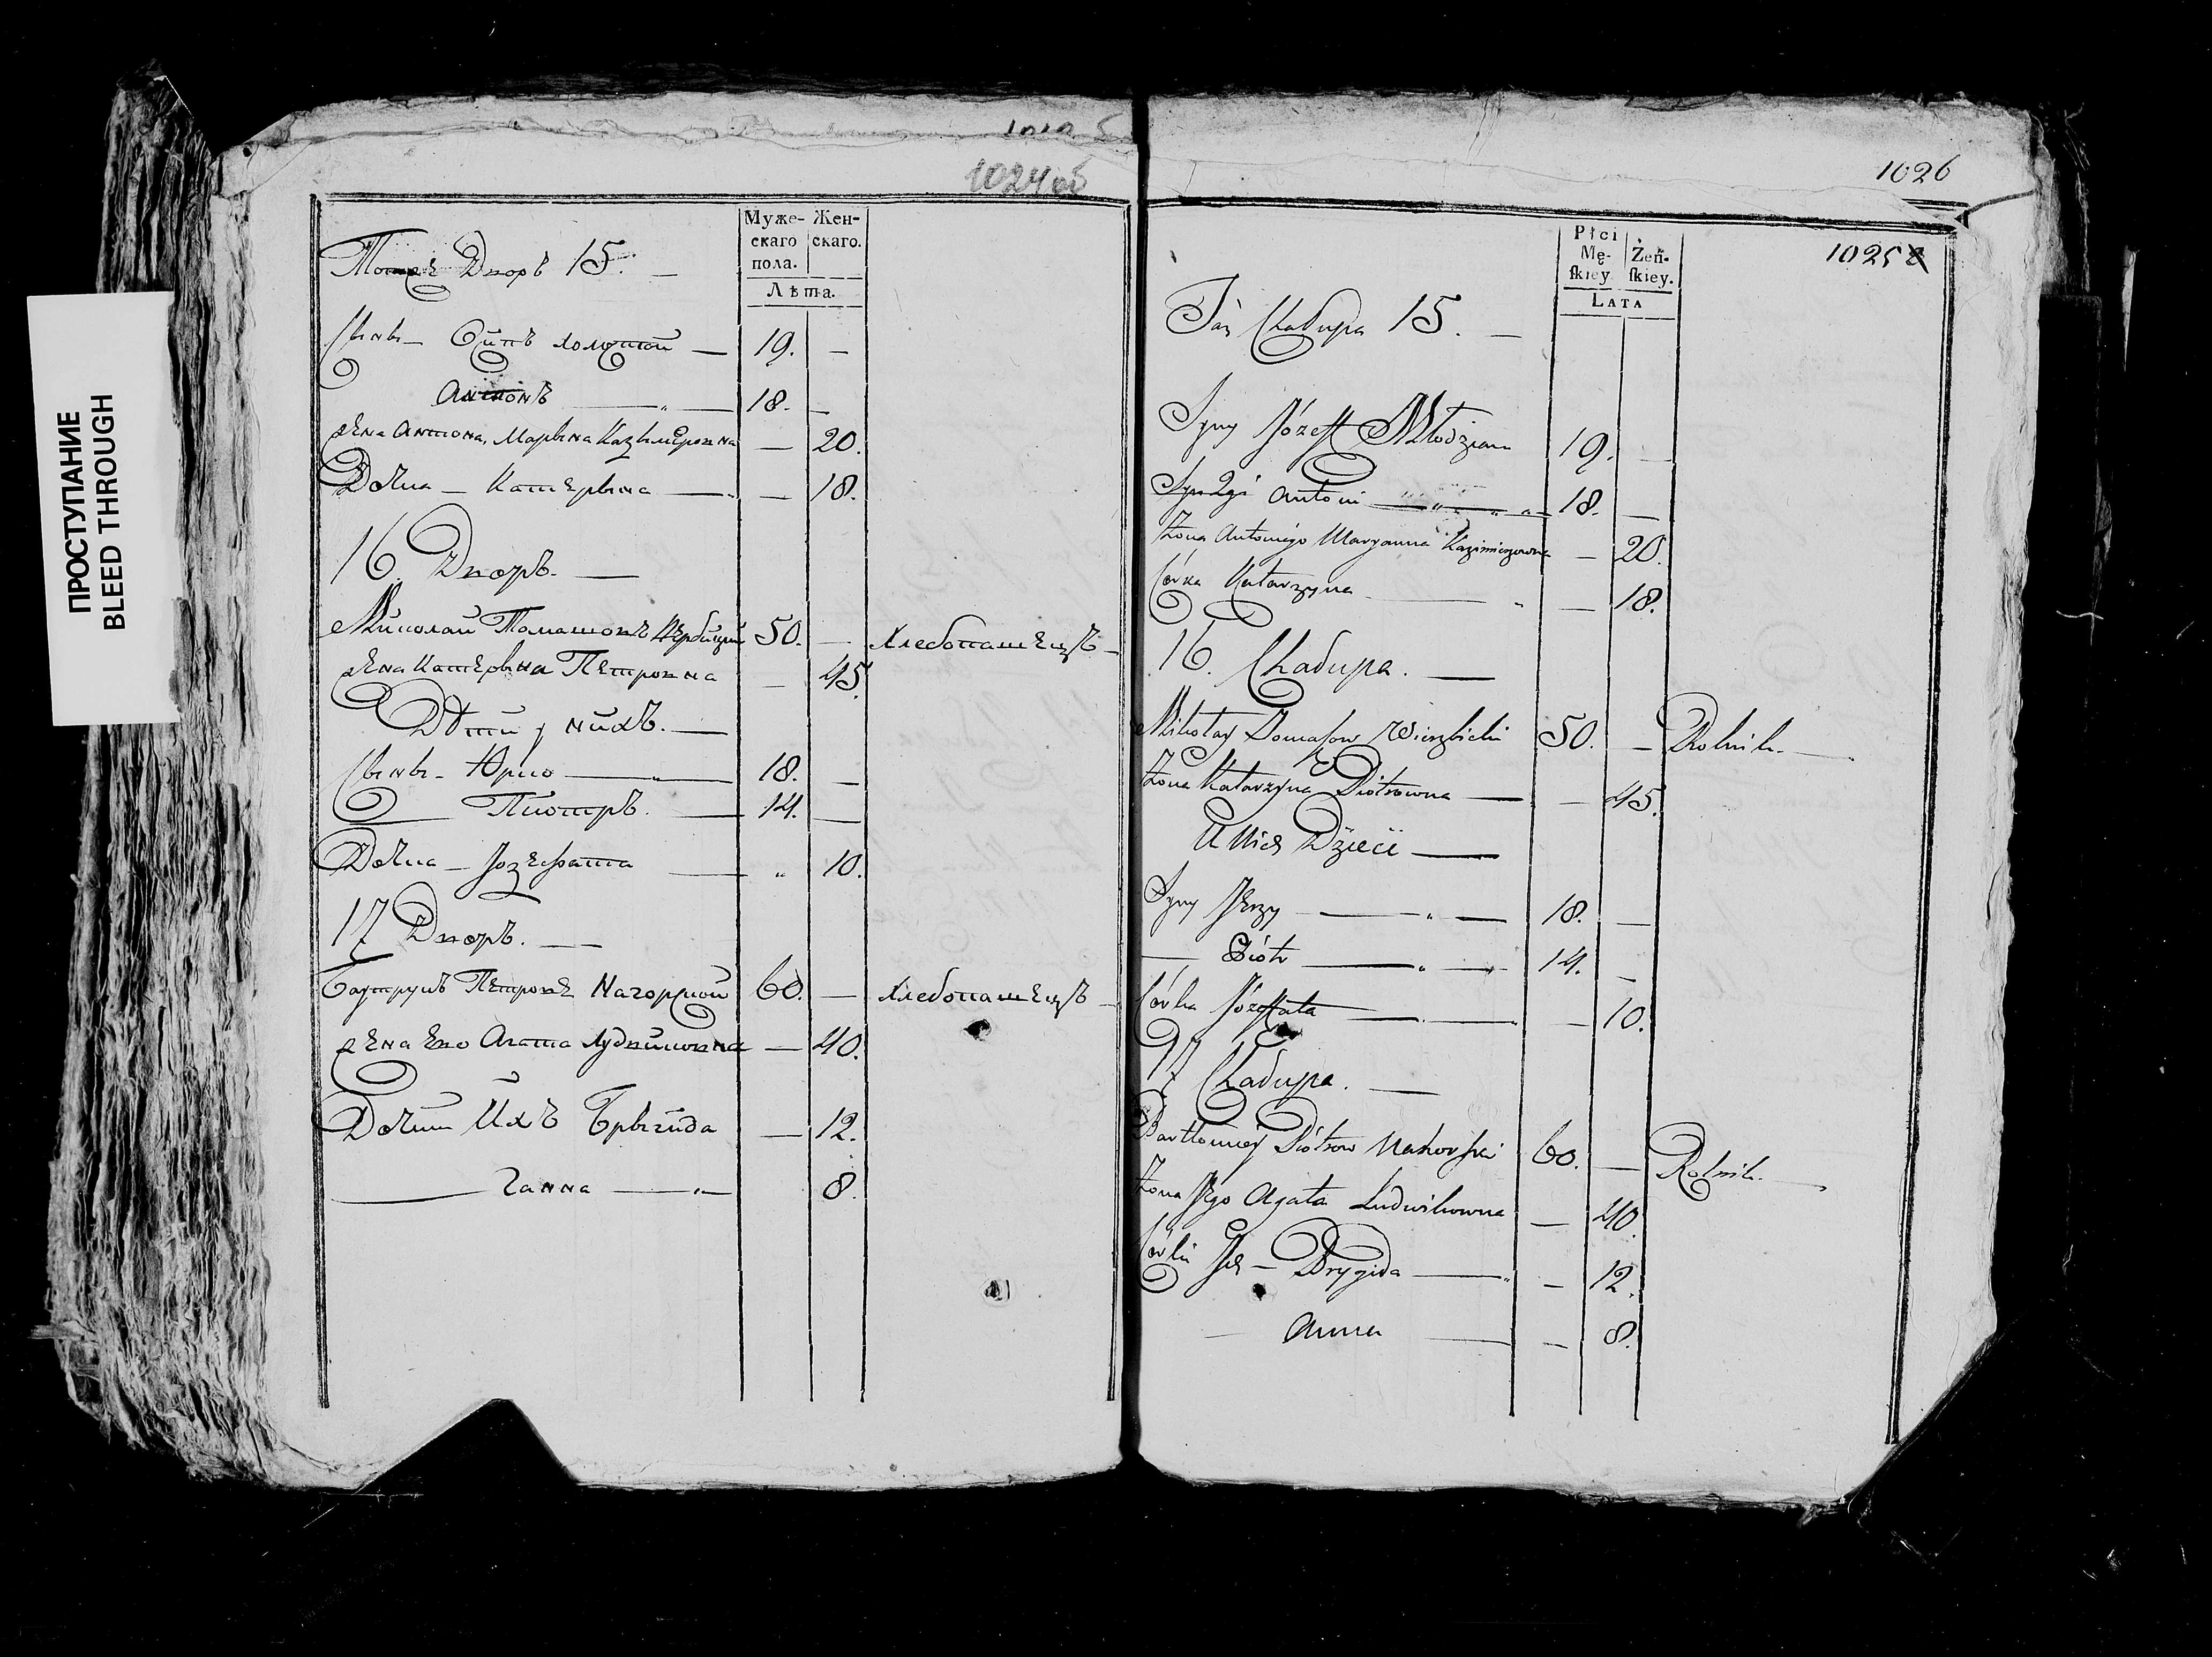 ПРОСТУПАНИЕ
BLEED THROUGH
1024об
Муже- Жен-
скаго скаго.
пола.
Лѣта.
Тотже Дворъ 15. —
Сыны — Осипъ холостой — 19. —
Антонъ — 18. —
жена Антона, Марьяна Казимеровна — 20.
Дочка — Катерына — — 18.
16 Дворъ. —
Миколай Томашовъ Вербицкий 50. — Хлебопашецъ —
жена Катерына Петровна — 45.
Дѣти у нихъ. —
Сыны — Юрко — 18. —
— Пиотръ. — 14. —
Дочка — Іозефата — " 10.
17 Дворъ. —
Баутруцъ Петровъ Нагорской 60. — Хлебопашецъ —
жена Ево Агата Лудвиковна — 40.
Дочки Ихъ Брыгида — 12.
— Ганна — " — 8.
1026
1025
Płci
Mę- Żeń-
ſkiey ſkiey.
LATA
Taż Chałupa 15. —
Syny Józeff Młodzian 19. —
Syn 2gi Antoni — " — 18. —
Żona Antoniego Maryanna Kazimierzowna — 20.
Córka Katarzyna — — 18.
16. Chałupa. —
Mikołay Tomaszow Wierzbicki 50. — Rolnik. —
Żona Katarzyna Piotrowna — — 45.
U Nich Dzieci —
Syny Jerzy — " — 18. —
— Piótr — " — 14. —
Córka Józeffata — — 10.
17 Chałupa. —
Bartłomiey Piótrow Nahorski 60. — Rolnik. —
Żona Jego Agata Ludwikowna — 40.
Córki Ich — Brygida — " — 12.
— Anna — — 8.